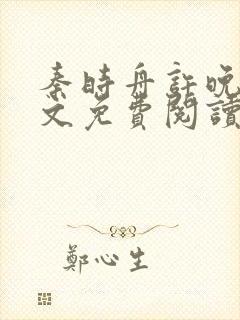 秦時舟許晚
文免費閱讀
鄭心生